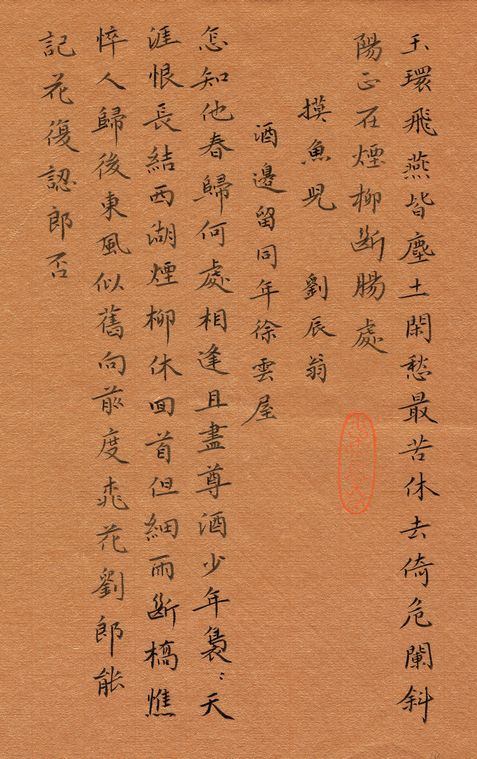 玉環飛燕皆塵土閑愁最苦休去倚危闌斜
陽正在煙柳斷腸處
摸魚兒 劉辰翁
酒邊留同年徐雲屋
怎知他春歸何處相逢且盡尊酒少年裊:天
涯恨長結西湖煙柳休回首但細雨斷橋憔
悴人歸後東風似舊向前度桃花劉郎能
記花復認郎否